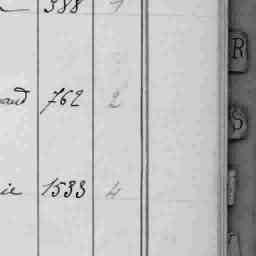 388 1
R
aud 762 2
S
ie 1533 4